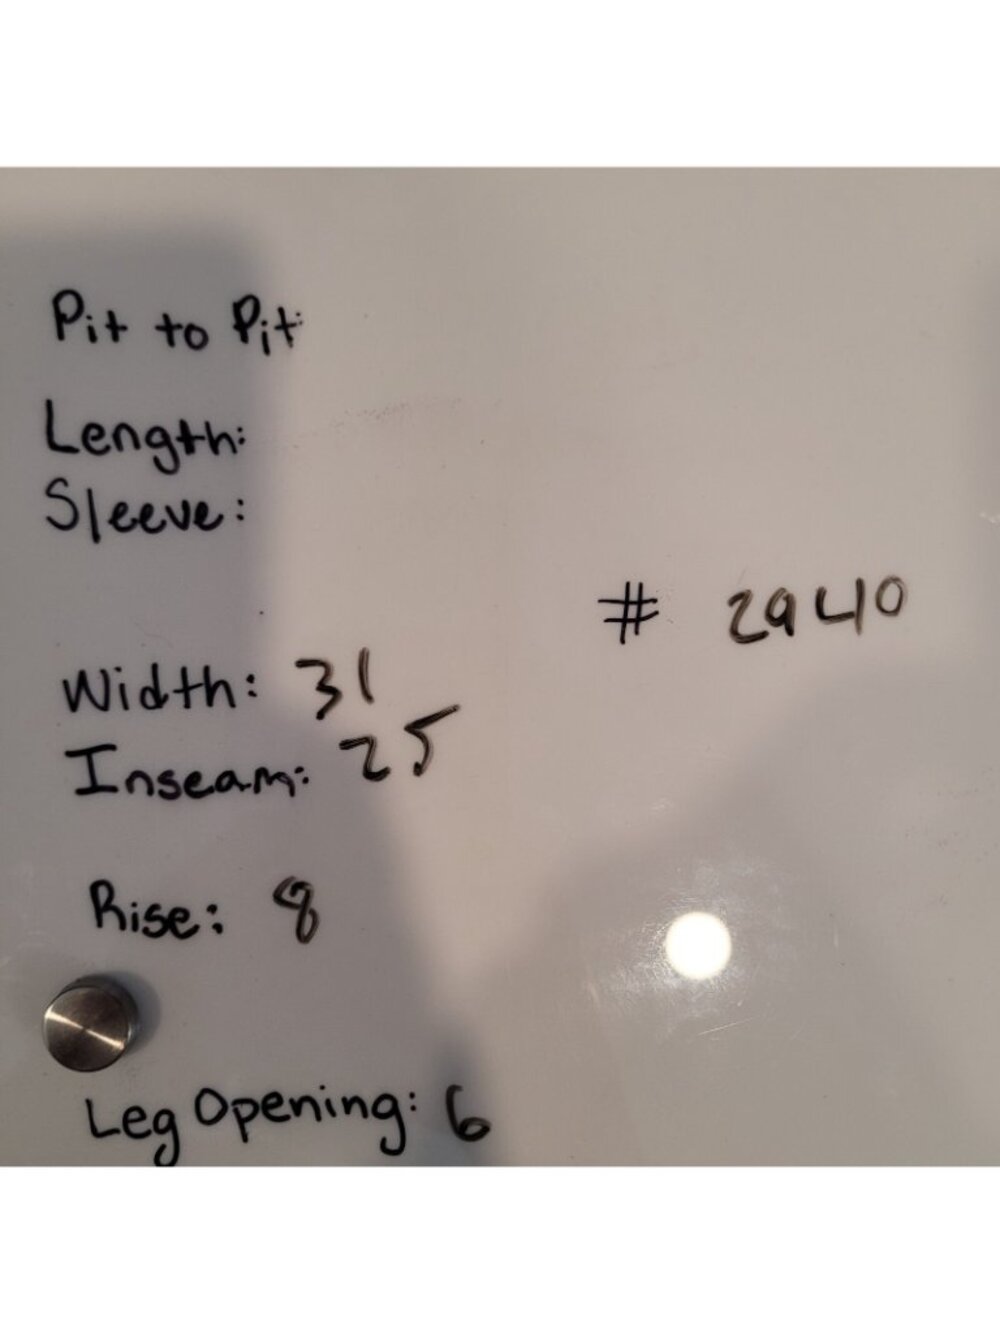 Pit to Pit:
Length:
Sleeve:
# 2940
Width: 31
Inseam: 25
Rise: 8
Leg Opening: 6